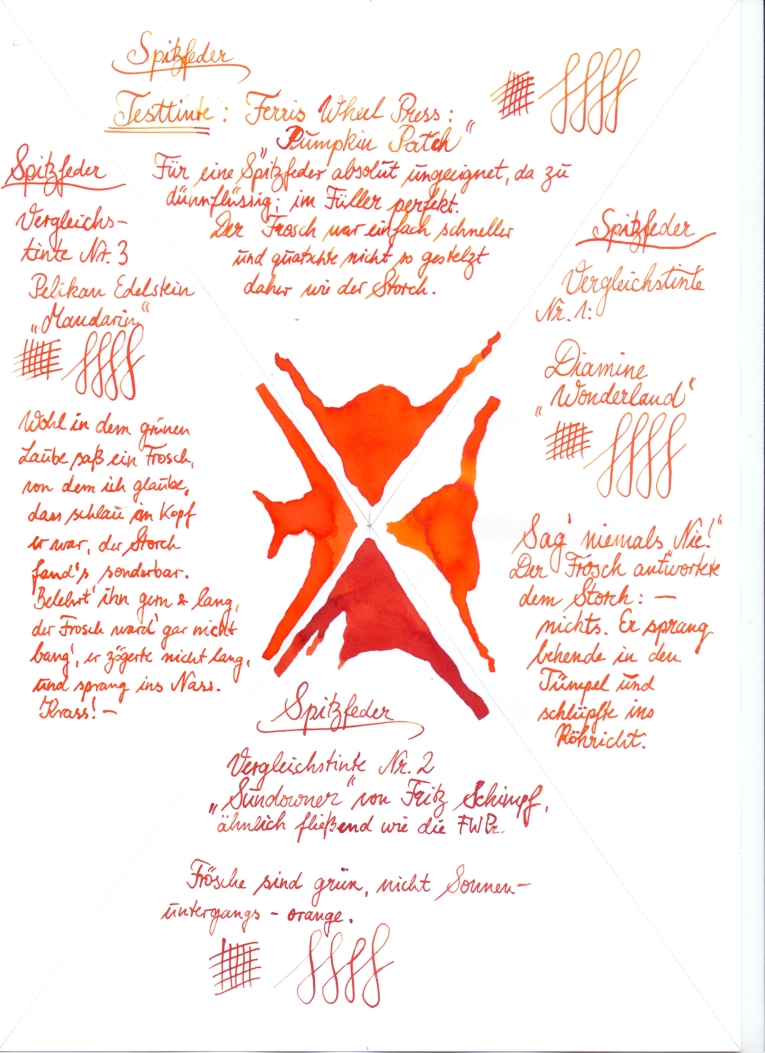 Spitzfeder
Testtinte: Ferris Wheel Press:
„Pumpkin Patch“
Für eine Spitzfeder absolut ungeeignet, da zu
dünnflüssig; im Füller perfekt.
Der Frosch war einfach schneller
und quatschte nicht so gestelzt
daher wie der Storch.
Spitzfeder
Vergleichs-
tinte Nr. 3
Pelikan Edelstein
„Mandarin“
Wohl in dem grünen
Laube saß ein Frosch,
von dem ich glaube,
dass schlau im Kopf
er war, der Storch
fand's sonderbar.
Belehrt' ihn gern & lang,
der Frosch ward' gar nicht
bang', er zögerte nicht lang,
und sprang ins Nass.
Krass! —
Spitzfeder
Vergleichstinte
Nr. 1:
Diamine
„Wonderland“
Sag' niemals Nie!“
Der Frosch antwortete
dem Storch: —
nichts. Er sprang
behende in den
Tümpel und
schlüpfte ins
Röhricht.
Spitzfeder
Vergleichstinte Nr. 2
„Sundowner“ von Fritz Schimpf,
ähnlich fließend wie die FWPr.
Frösche sind grün, nicht Sonnen-
untergangs - orange.